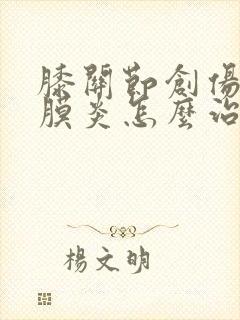 膝關節創傷
膜炎怎麼治
楊文明